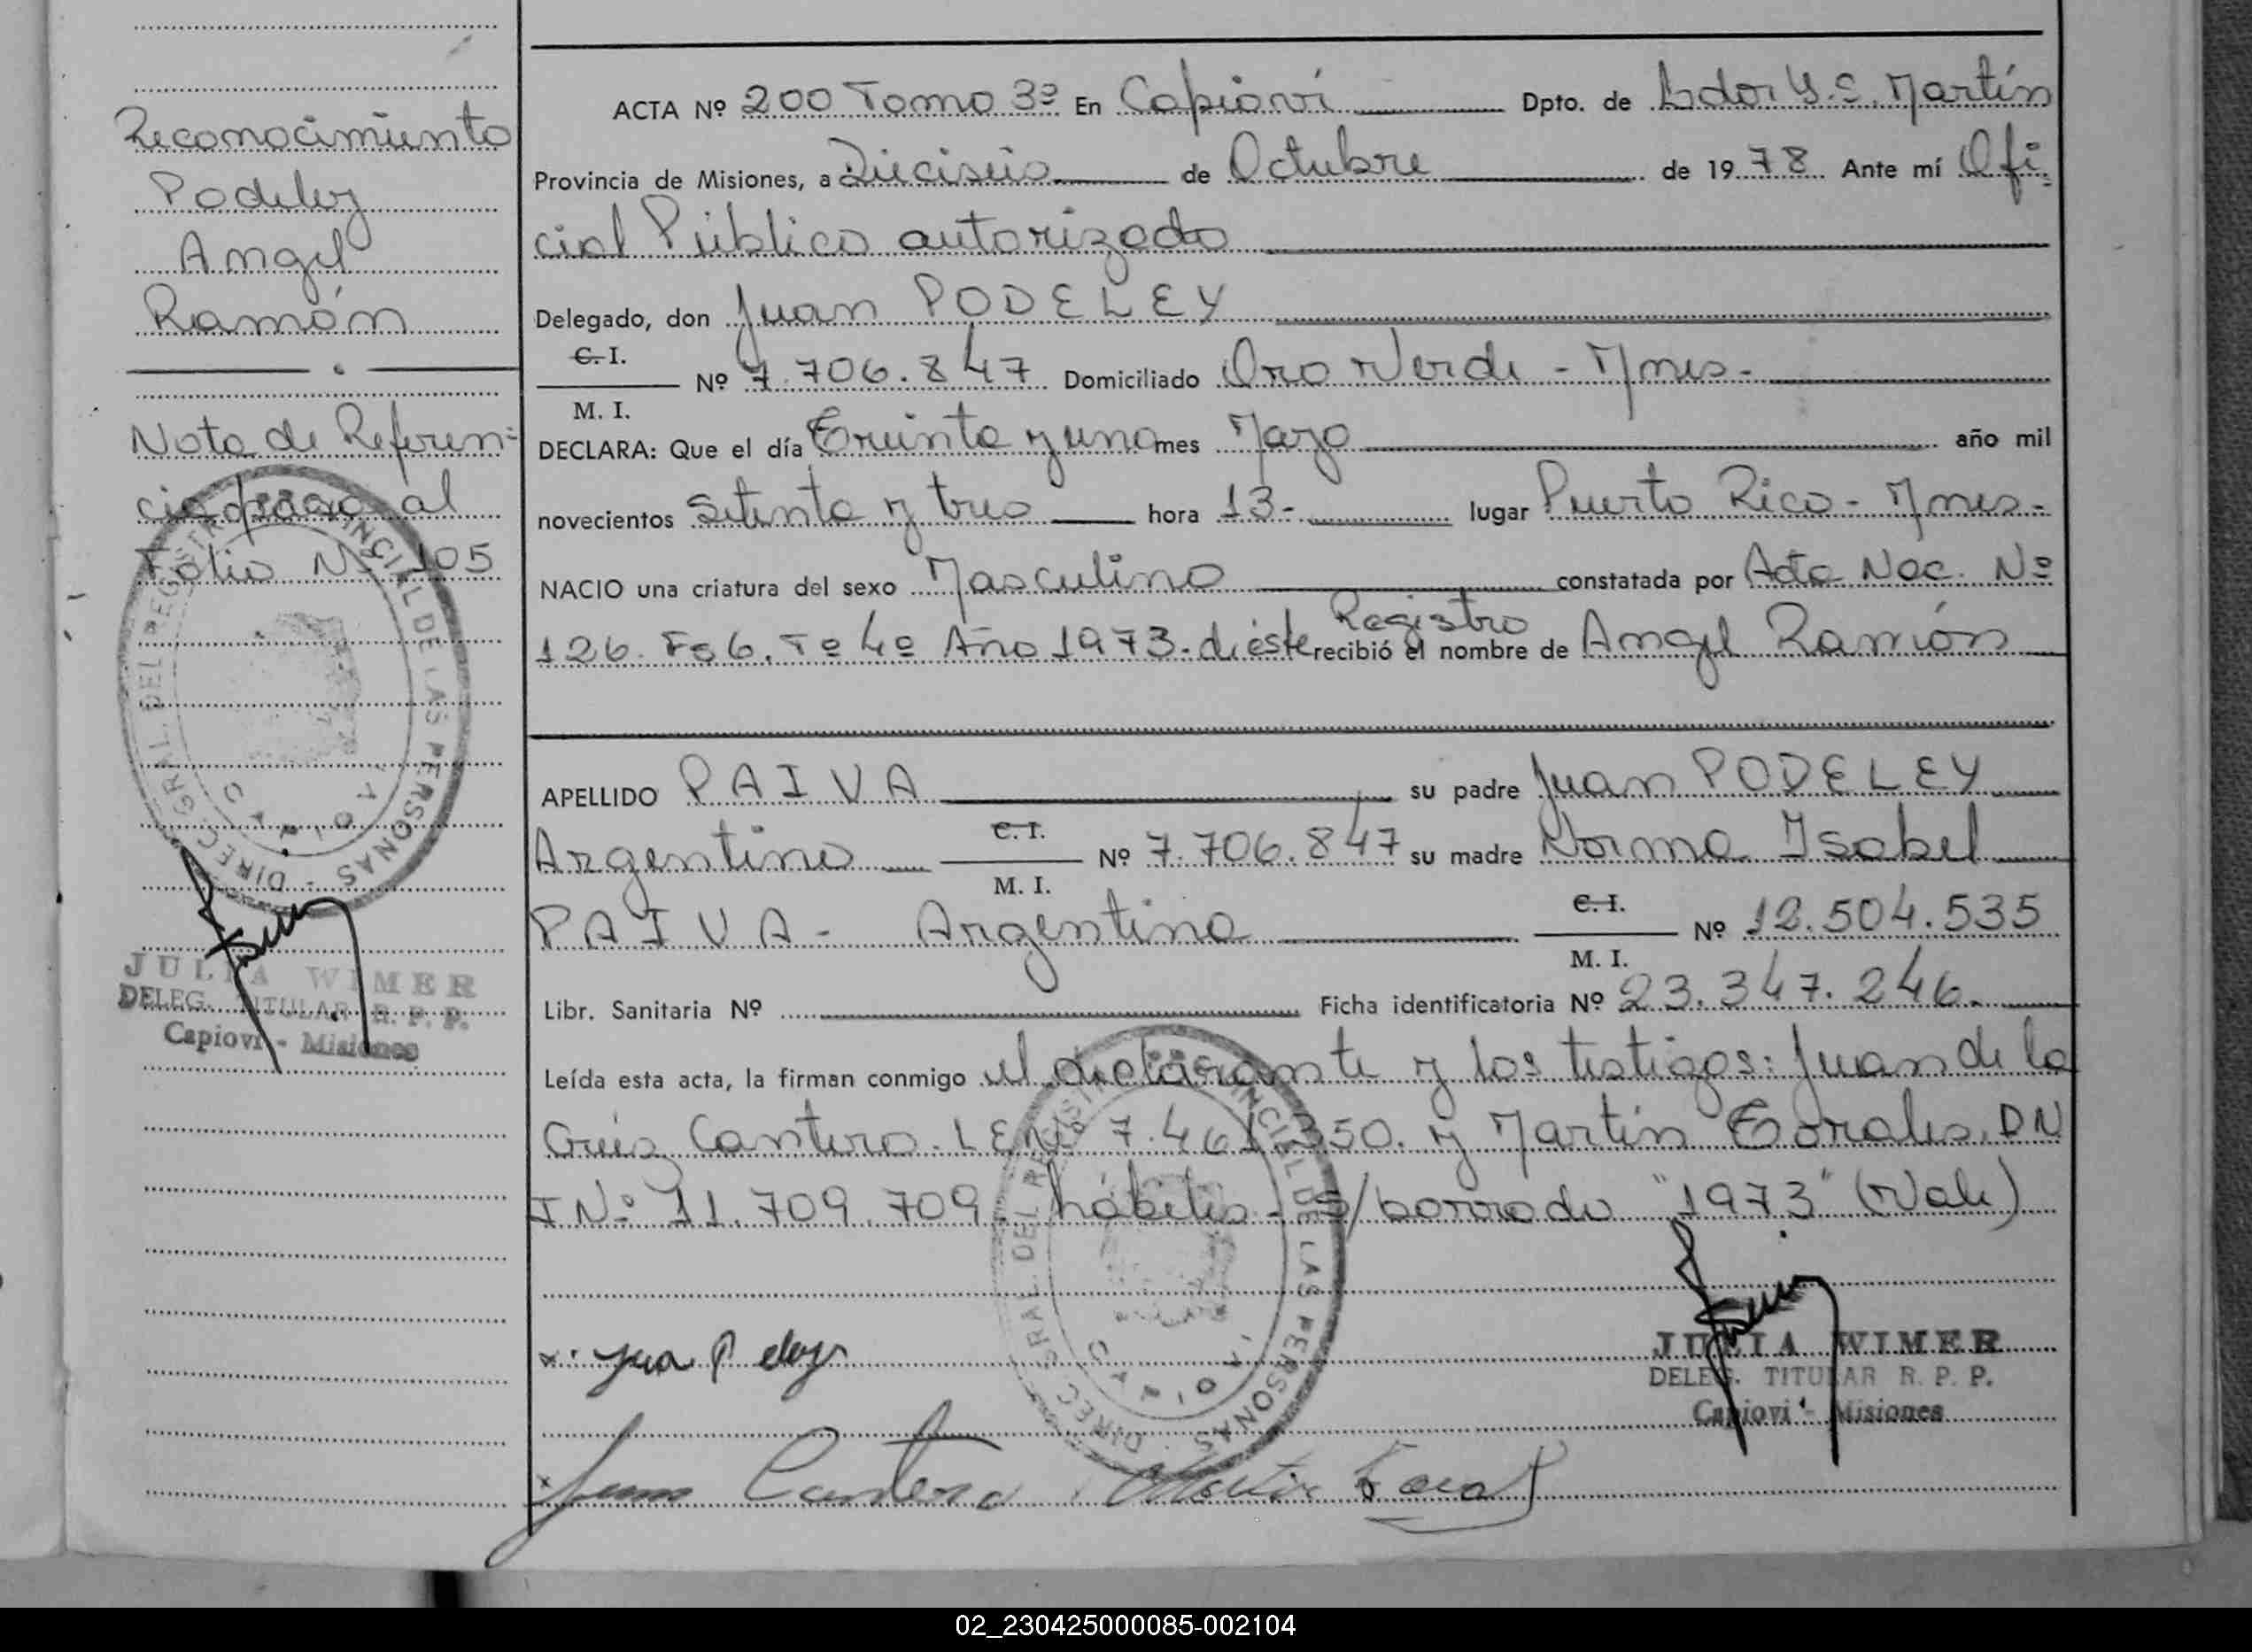 Reconocimiento
Podeley
Angel
Ramón
Nota de Referen-
cia pasa al
Folio Nº 105
DIREC. GRAL. DEL REGISTRO PROVINCIAL DE LAS PERSONAS
CAPIOVI
JULIA WIMER
DELEG. TITULAR R. P. P.
Capiovi - Misiones
ACTA Nº 200 Tomo 3º En Capioví Dpto. de Ldor G. S. Martín
Provincia de Misiones, a Dieciseis de Octubre de 1978 Ante mí Ofi-
cial Público autorizado
Delegado, don Juan PODELEY
C. I.
Nº 7.706.847 Domiciliado Oro Verde - Mnes.-
M. I.
DECLARA: Que el día Treinta y uno mes Mayo año mil
novecientos setenta y tres hora 13.- lugar Puerto Rico - Mnes.-
NACIO una criatura del sexo Masculino constatada por Acta Nac. Nº
126. Fº 6. Tº 4º Año 1973. de éste Registro recibió el nombre de Angel Ramón
APELLIDO PAIVA su padre Juan PODELEY
Argentino C. I. M. I. Nº 7.706.847 su madre Norma Isabel
PAIVA - Argentina C. I. M. I. Nº 12.504.535
Libr. Sanitaria Nº Ficha identificatoria Nº 23.347.246.
Leída esta acta, la firman conmigo el declarante y los testigos: Juan de la
Cruz Cantero. L E Nº 7.461.350. y Martín Torales. DN
I Nº 11.709.709. hábiles - S/borrado "1973" (Vale)
DIREC. GRAL. DEL REGISTRO PROVINCIAL DE LAS PERSONAS
CAPIOVI
JULIA WIMER
DELEG. TITULAR R. P. P.
Capiovi - Misiones
Juan Cantero
02_230425000085-002104